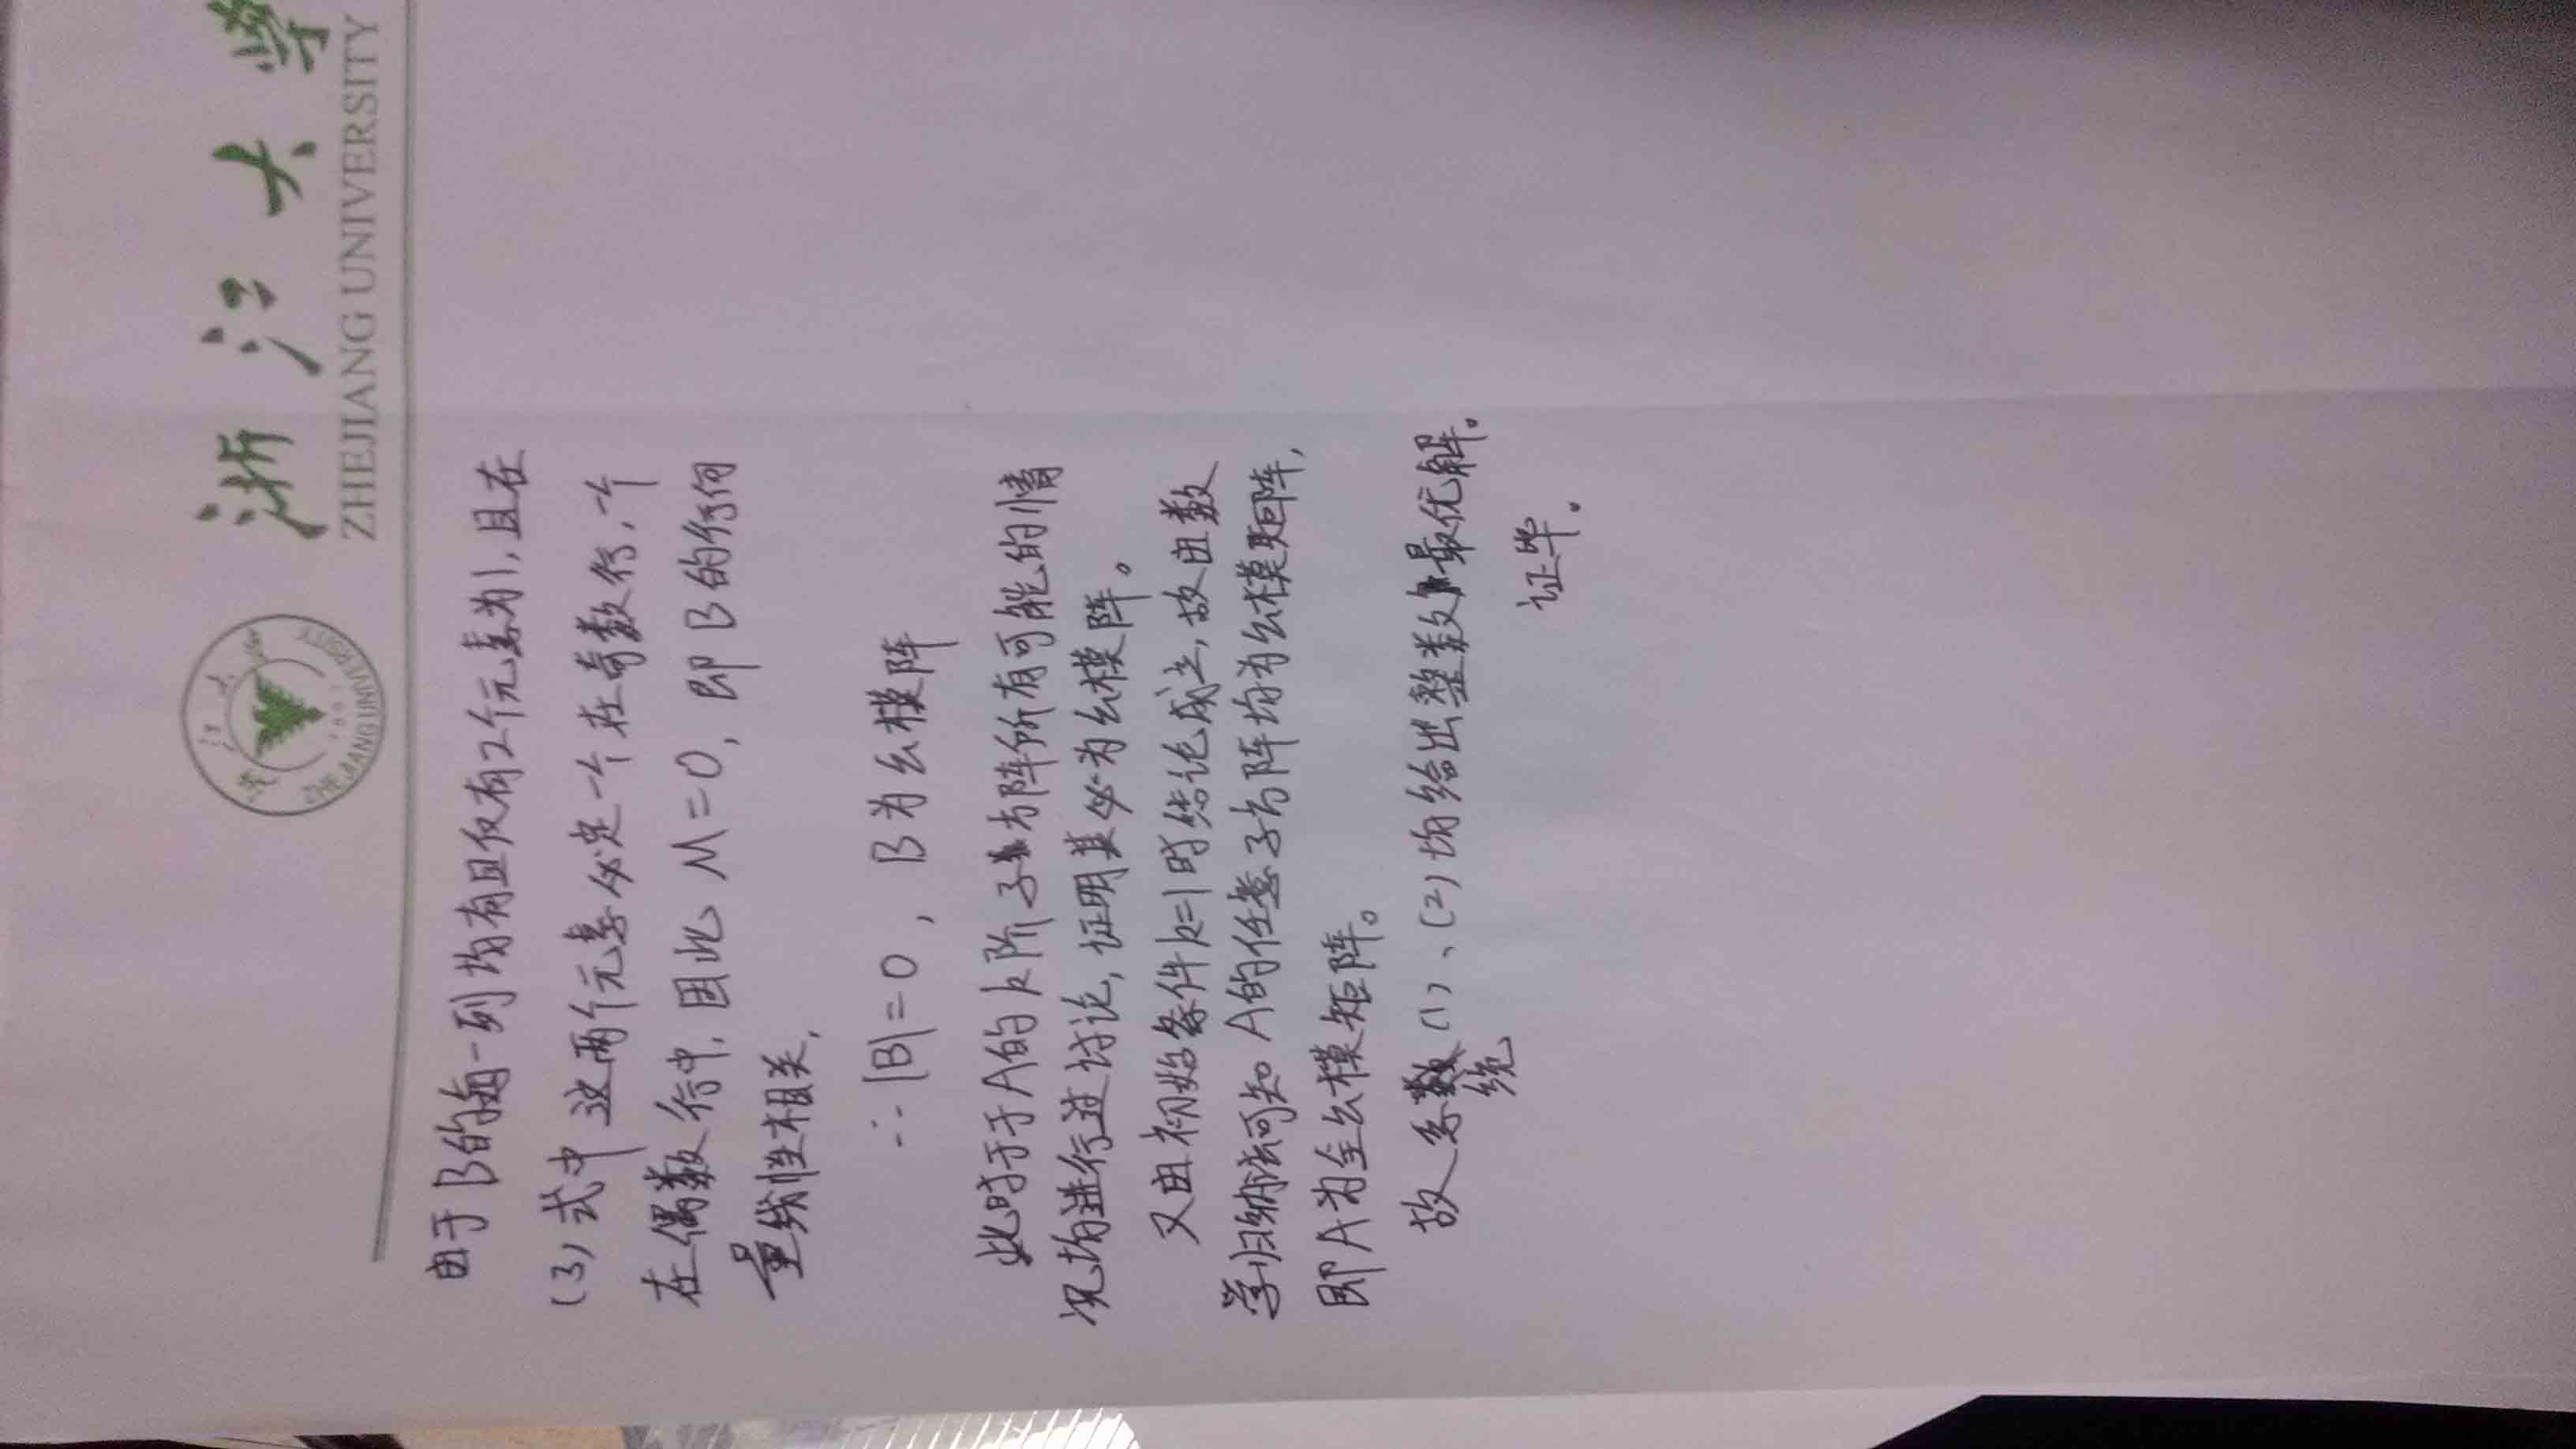 浙江大学
ZHEJIANG UNIVERSITY
由于B的每一列均有且仅有2个元素为1,且在
(3)式中这两个元素必定一个在奇数行,一个
在偶数行中,因此 M=0,即B的行向
量线性相关,
∴ |B|=0, B为幺模阵
此时于A的k阶子方阵所有可能的情
况均进行过讨论,证明其必为幺模阵。
又由初始条件k=1时结论成立,故由数
学归纳法可知 A的任意子方阵均为幺模矩阵,
即A为全幺模矩阵。
故系统(1)、(2)均给出整数最优解。
证毕。